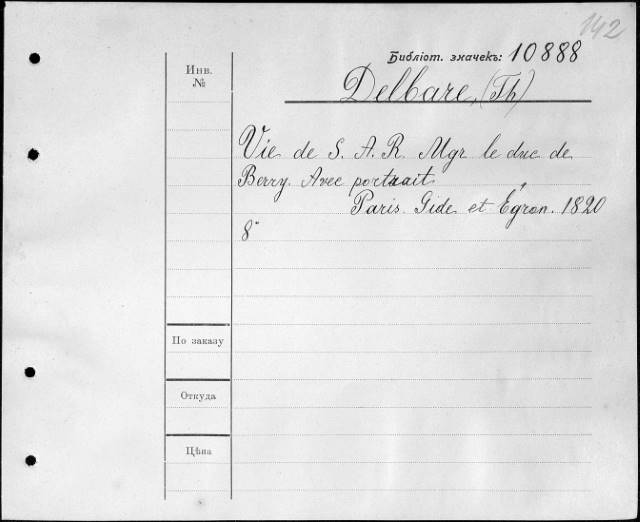 142
Библіот. значекъ: 10888
Инв.
№
Delbare, (Th)
Vie de S. A. R. Mgr le duc de
Berry. Avec portrait
Paris. Gide et Égron. 1820
8°
По заказу
Откуда
Цѣна